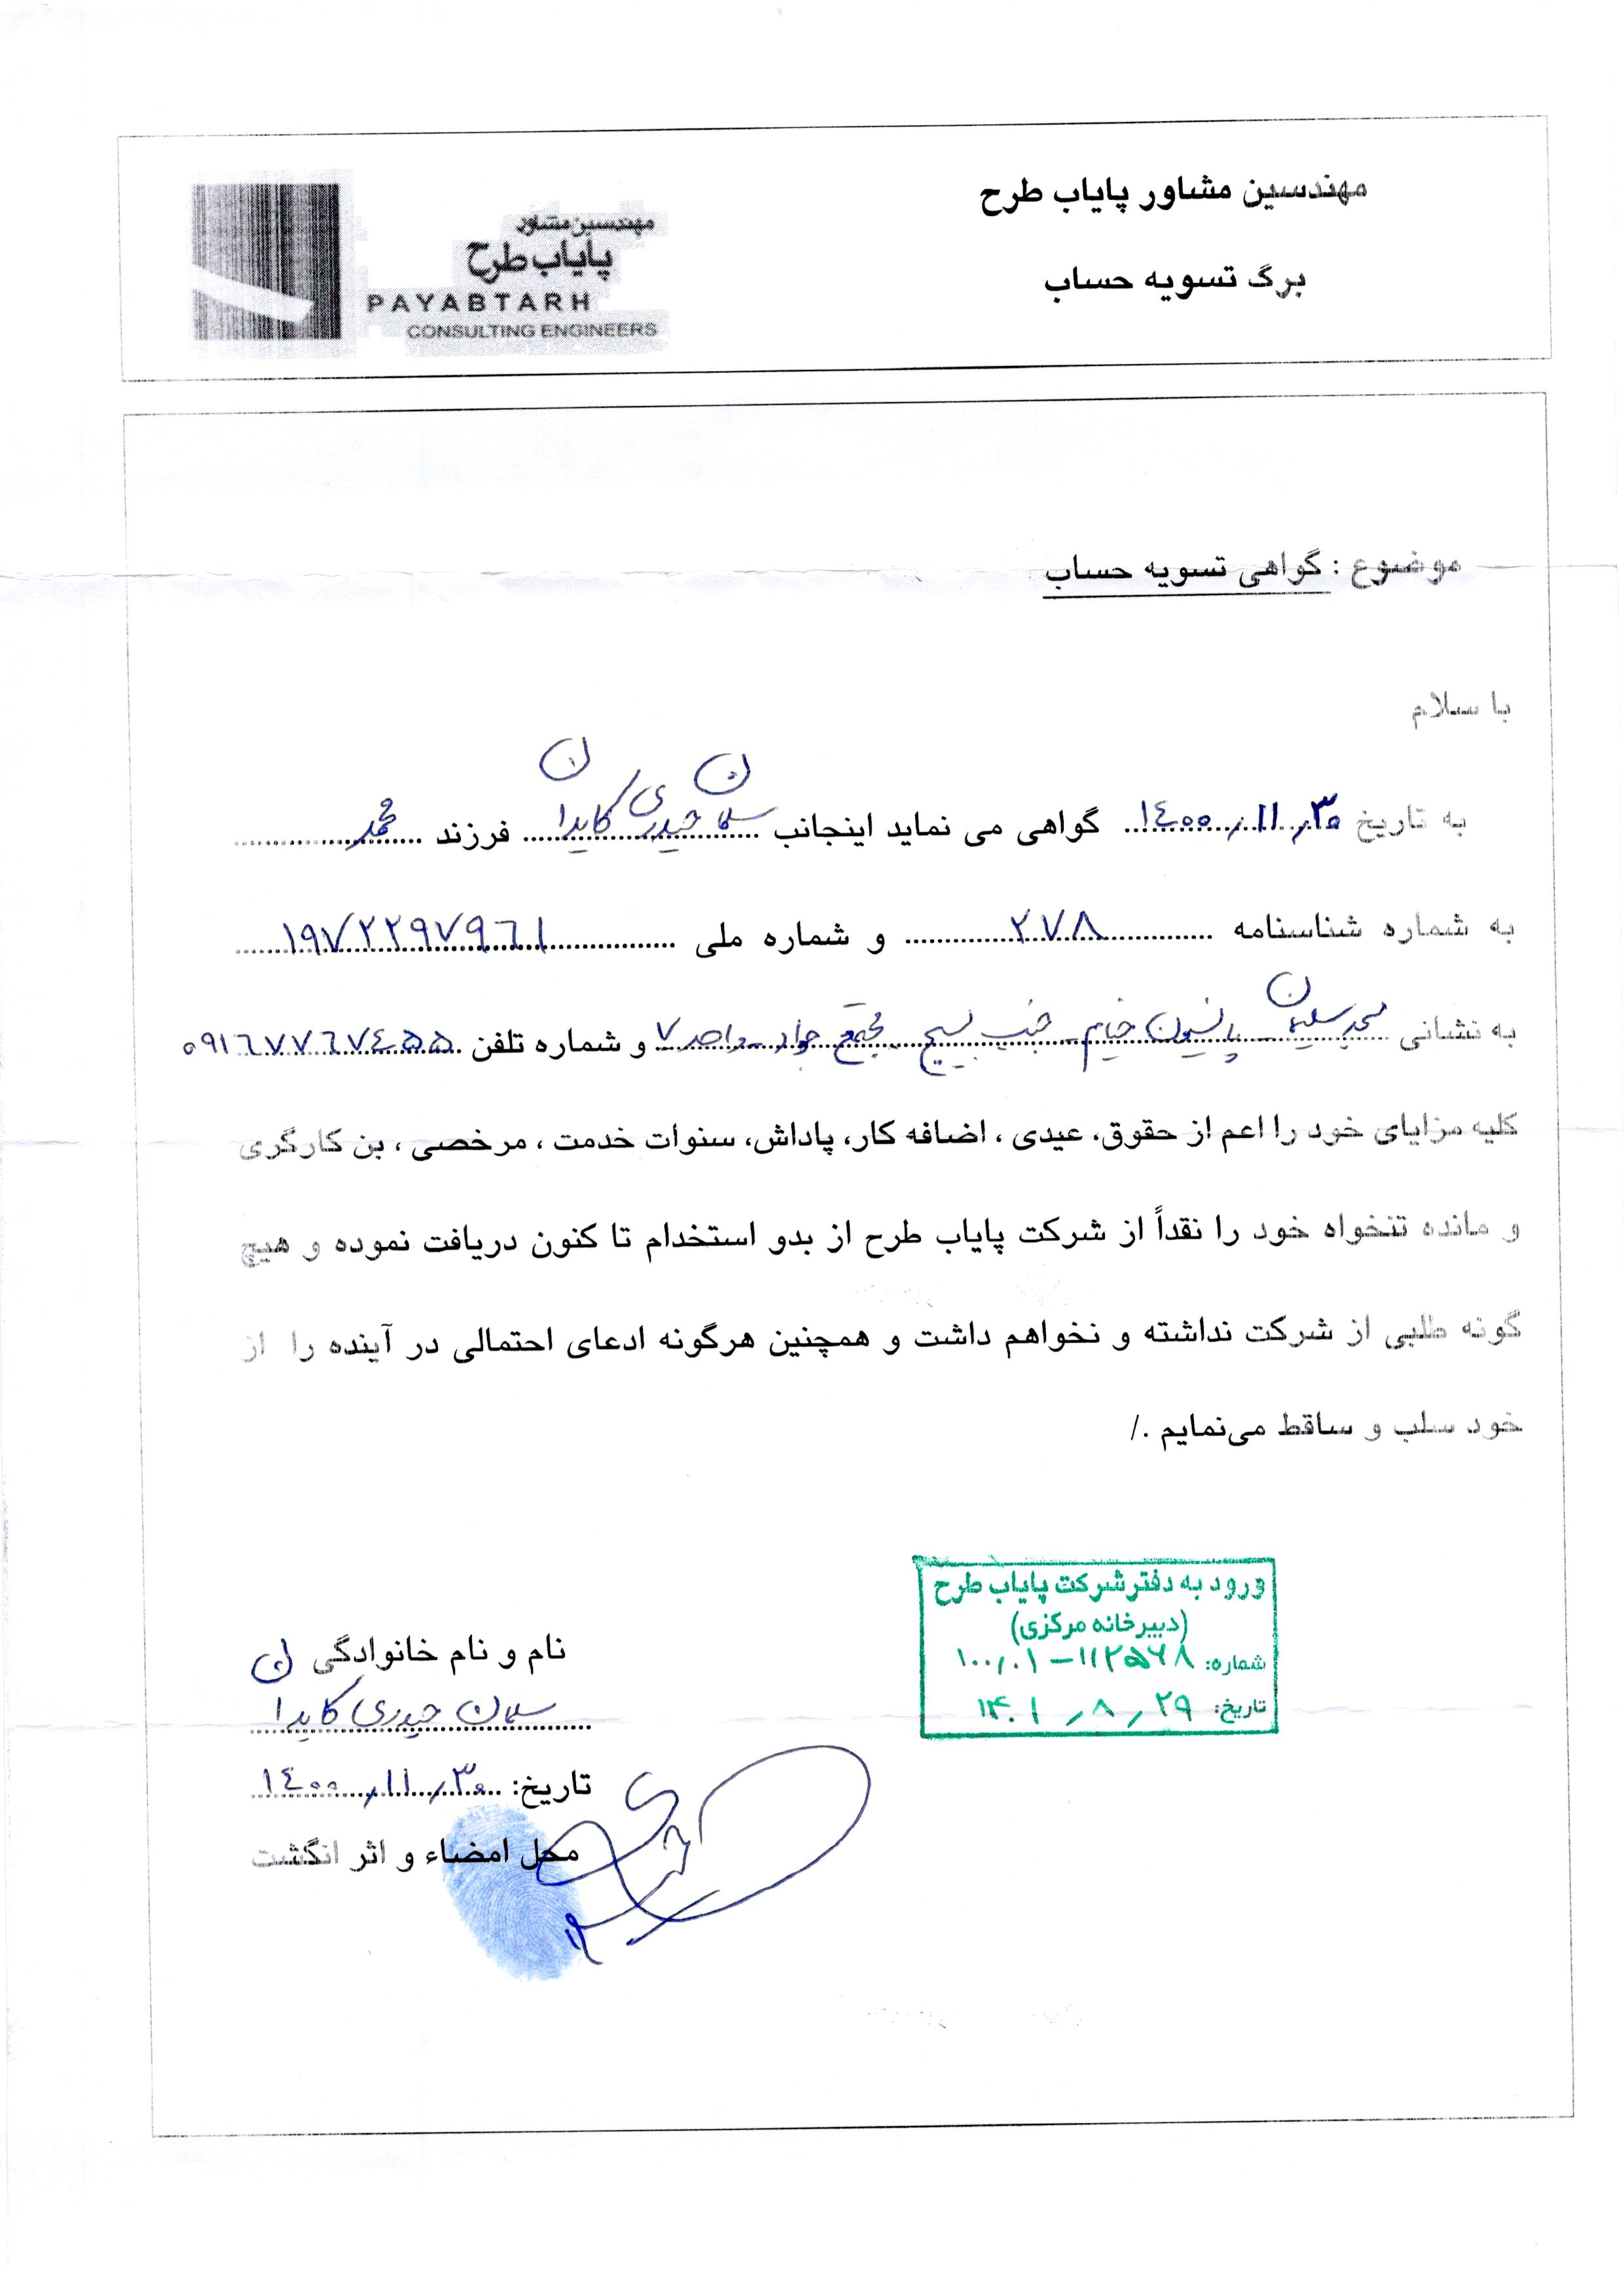 مهندسین مشاور پایاب طرح
برگ تسویه حساب
مهندسین مشاور
پایاب طرح
PAYABTARH
CONSULTING ENGINEERS
موضوع : گواهی تسویه حساب
با سلام
به تاریخ ۱۴۰۰/۱۱/۳۰ گواهی می نماید اینجانب سلمان حیدری کایدان فرزند محمد
به شماره شناسنامه ۲۷۸ و شماره ملی ۱۹۷۲۲۹۷۹۶۱
به نشانی مسجدسلیمان - پانسیون خیام - جنب بسیج - مجتمع جواد - واحد ۷ و شماره تلفن ۰۹۱۶۷۷۶۷۴۵۵
کلیه مزایای خود را اعم از حقوق، عیدی ، اضافه کار، پاداش، سنوات خدمت ، مرخصی ، بن کارگری
و مانده تنخواه خود را نقداً از شرکت پایاب طرح از بدو استخدام تا کنون دریافت نموده و هیچ
گونه طلبی از شرکت نداشته و نخواهم داشت و همچنین هرگونه ادعای احتمالی در آینده را از
خود سلب و ساقط می‌نمایم ./
ورود به دفتر شرکت پایاب طرح
(دبیرخانه مرکزی)
شماره: ۱۰۰/۰۱-۱۱۲۵۶۸
تاریخ: ۱۴۰۱/۸/۲۹
نام و نام خانوادگی
سلمان حیدری کایدان
تاریخ: ۱۴۰۰/۱۱/۳۰
محل امضاء و اثر انگشت